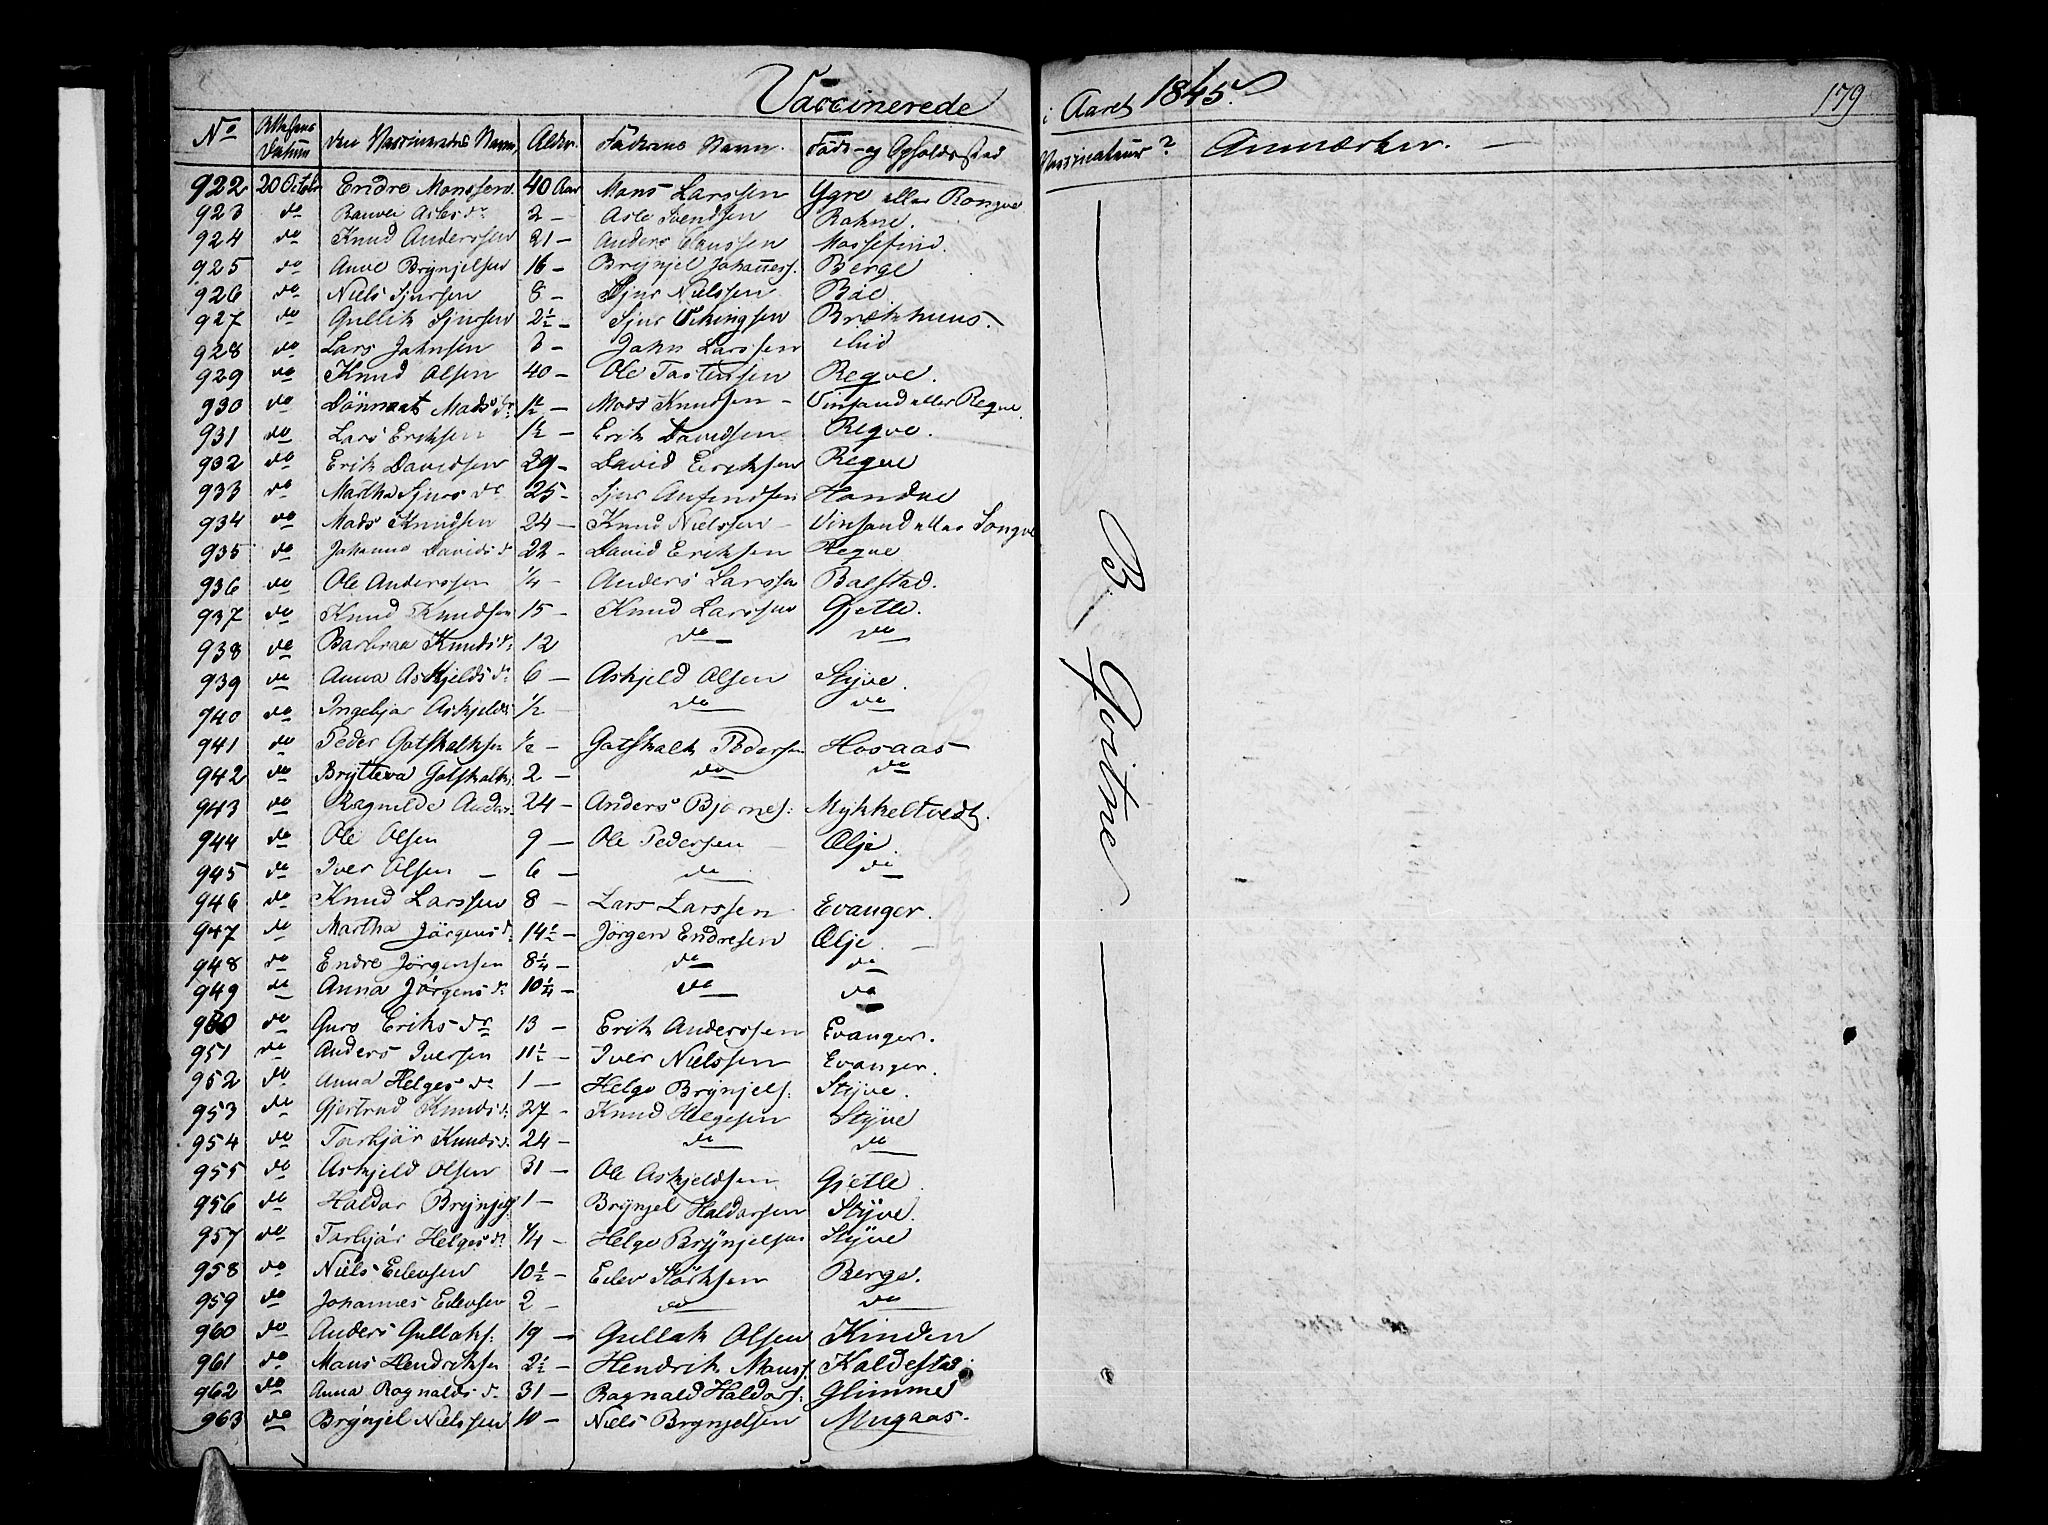 Vaccinerede i Aaret 1845. 179
No Attestens Datum Den Vaccineredes Navn Alder Faderens Navn Føde- og Opholdssted Vaccinateur? Anmærkn.
922 20 Octobr Endre Monssen 40 Aar Mons Larssen Ygre eller Rongve
923 do Asles dr 2 - Asle Svendsen Rokne.
924 do Knud Anderssen 21 - Anders Claussen Mossefind.
925 do Anve Brynjelsen 16 - Brynjel Johañess. Berge
926 do Niels Sjursen 8 - Sjur Nielssen Böe
927 do Gullik Sjursen 2½ - Sjur Vikingsen Brækhuus.
928 do Lars Johnsen 3 - John Larssen
929 do Knud Olsen 40 - Ole Tostensen Reqve.
930 do Dönnaat Mads dr 1½ - Mads Knudsen - Vinsand eller Reqve.
931 do Lars Eriksen 1½ - Erik Davidsen Reqve.
932 do Erik Davidsen 29 - David Eriksen Reqve
933 do Martha Sjurs dr 25 - Sjur Anfindsen Hondve
934 do Mads Knudsen 24 - Knud Nielssen - Vinsand eller Songve
935 do Johanne Davids dr 22 - David Eriksen Reqve
936 do Ole Anderssen ¼ - Anders Larssen Bolstad.
937 do Knud Knudsen 15 - Knud Larssen Gjetle.
938 do Barbraa Knuds dr 12 do do
939 do Anna Askjelds dr 6 - Askjeld Olsen Styve.
940 do Ingebjor Askjelds ½ - do do
941 do Peder Gotskalksen ½ - Gotskalk Pedersen Hovaas
942 do Brytteva Gotskalks 2 - do do
943 do Ragnilde Anders 24 - Anders Bjornes: Mykkeltvedt.
944 do Ole Olsen 9 - Ole Pedersen Ælje.
945 do Iver Olsen - 6 - do do
946 do Knud Larssen 8 - Lars Larssen Evanger.
947 do Martha Jörgens dr 14½ - Jörgen Endresen Ælje. -
948 do Endre Jörgensen 8¼ - do do
949 do Anna Jörgens dr 10¼ - do do
950 do Guro Eriks dr 13 - Erik Anderssen Evanger.
951 do Anders Iversen 11½ - Iver Nielssen Evanger.
952 do Anna Helges dr 1 - Helge Brynjels: Styve.
953 do Gjertrud Knuds dr 27 - Knud Helgesen Styve
954 do Torbjör Knuds dr 24 - do do
955 do Askjeld Olsen 31 - Ole Askjeldsen Gjetle.
956 do Haldor Brynjels 1 - Brynjel Haldorsen Styve.
957 do Torbjör Helges dr ¼ - Helge Brynjelsen Styve
958 do Niels Eilevsen 10½ - Eilev Störksen Berge.
959 do Johannes Eilevsen 2 - do do
960 do Anders Gullaks: 19 - Gullak Olsen Kinden
961 do Mons Hendriksen 2½ - Hendrik Monss. Kaldestad.
962 do Anna Rognalds dr 31 - Rognald Haldors: Glimme
963 do Brynjel Nielssen 10 - Niels Brynjelsen Mugaas.
B. Qvitne